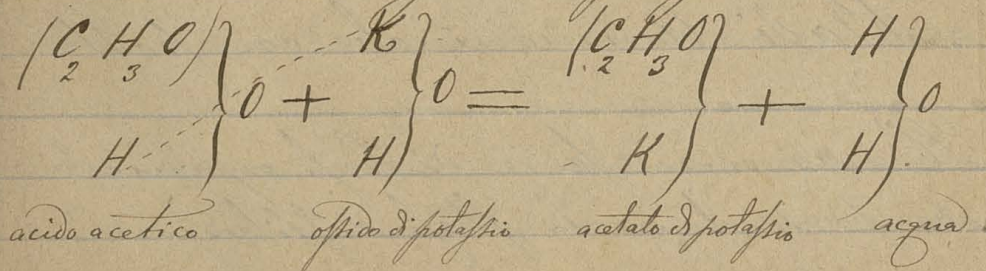 (C₂ H₃ O) } O + K } O = (C₂ H₃ O) } + H } O
H H K H
acido acetico ossido di potassio acetato di potassio acqua